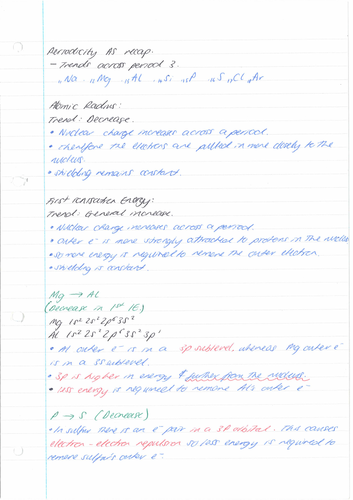 Periodicity AS recap.
- Trends across period 3.
11Na 12Mg 13Al 14Si 15P 16S 17Cl 18Ar
Atomic Radius:
Trend: Decrease.
• Nuclear charge increases across a period.
• Therefore the electrons are pulled in more closely to the
nucleus.
• shielding remains constant.
First Ionisation Energy:
Trend: General increase.
• Nuclear charge increases across a period.
• outer e⁻ is more strongly attracted to protons in the nucleus
• so more energy is required to remove the outer electron.
• shielding is constant.
Mg → AL
(Decrease in 1st IE)
Mg 1s² 2s² 2p⁶ 3s²
AL 1s² 2s² 2p⁶ 3s² 3p¹
• Al outer e⁻ is in a 3p sublevel, whereas Mg outer e⁻
is in a 3s sublevel.
• 3p is higher in energy & further from the nucleus.
• less energy is required to remove Al's outer e⁻
P → S (Decrease)
• In sulfur there is an e⁻ pair in a 3p orbital. This causes
electron-electron repulsion so less energy is required to
remove sulfur's outer e⁻.